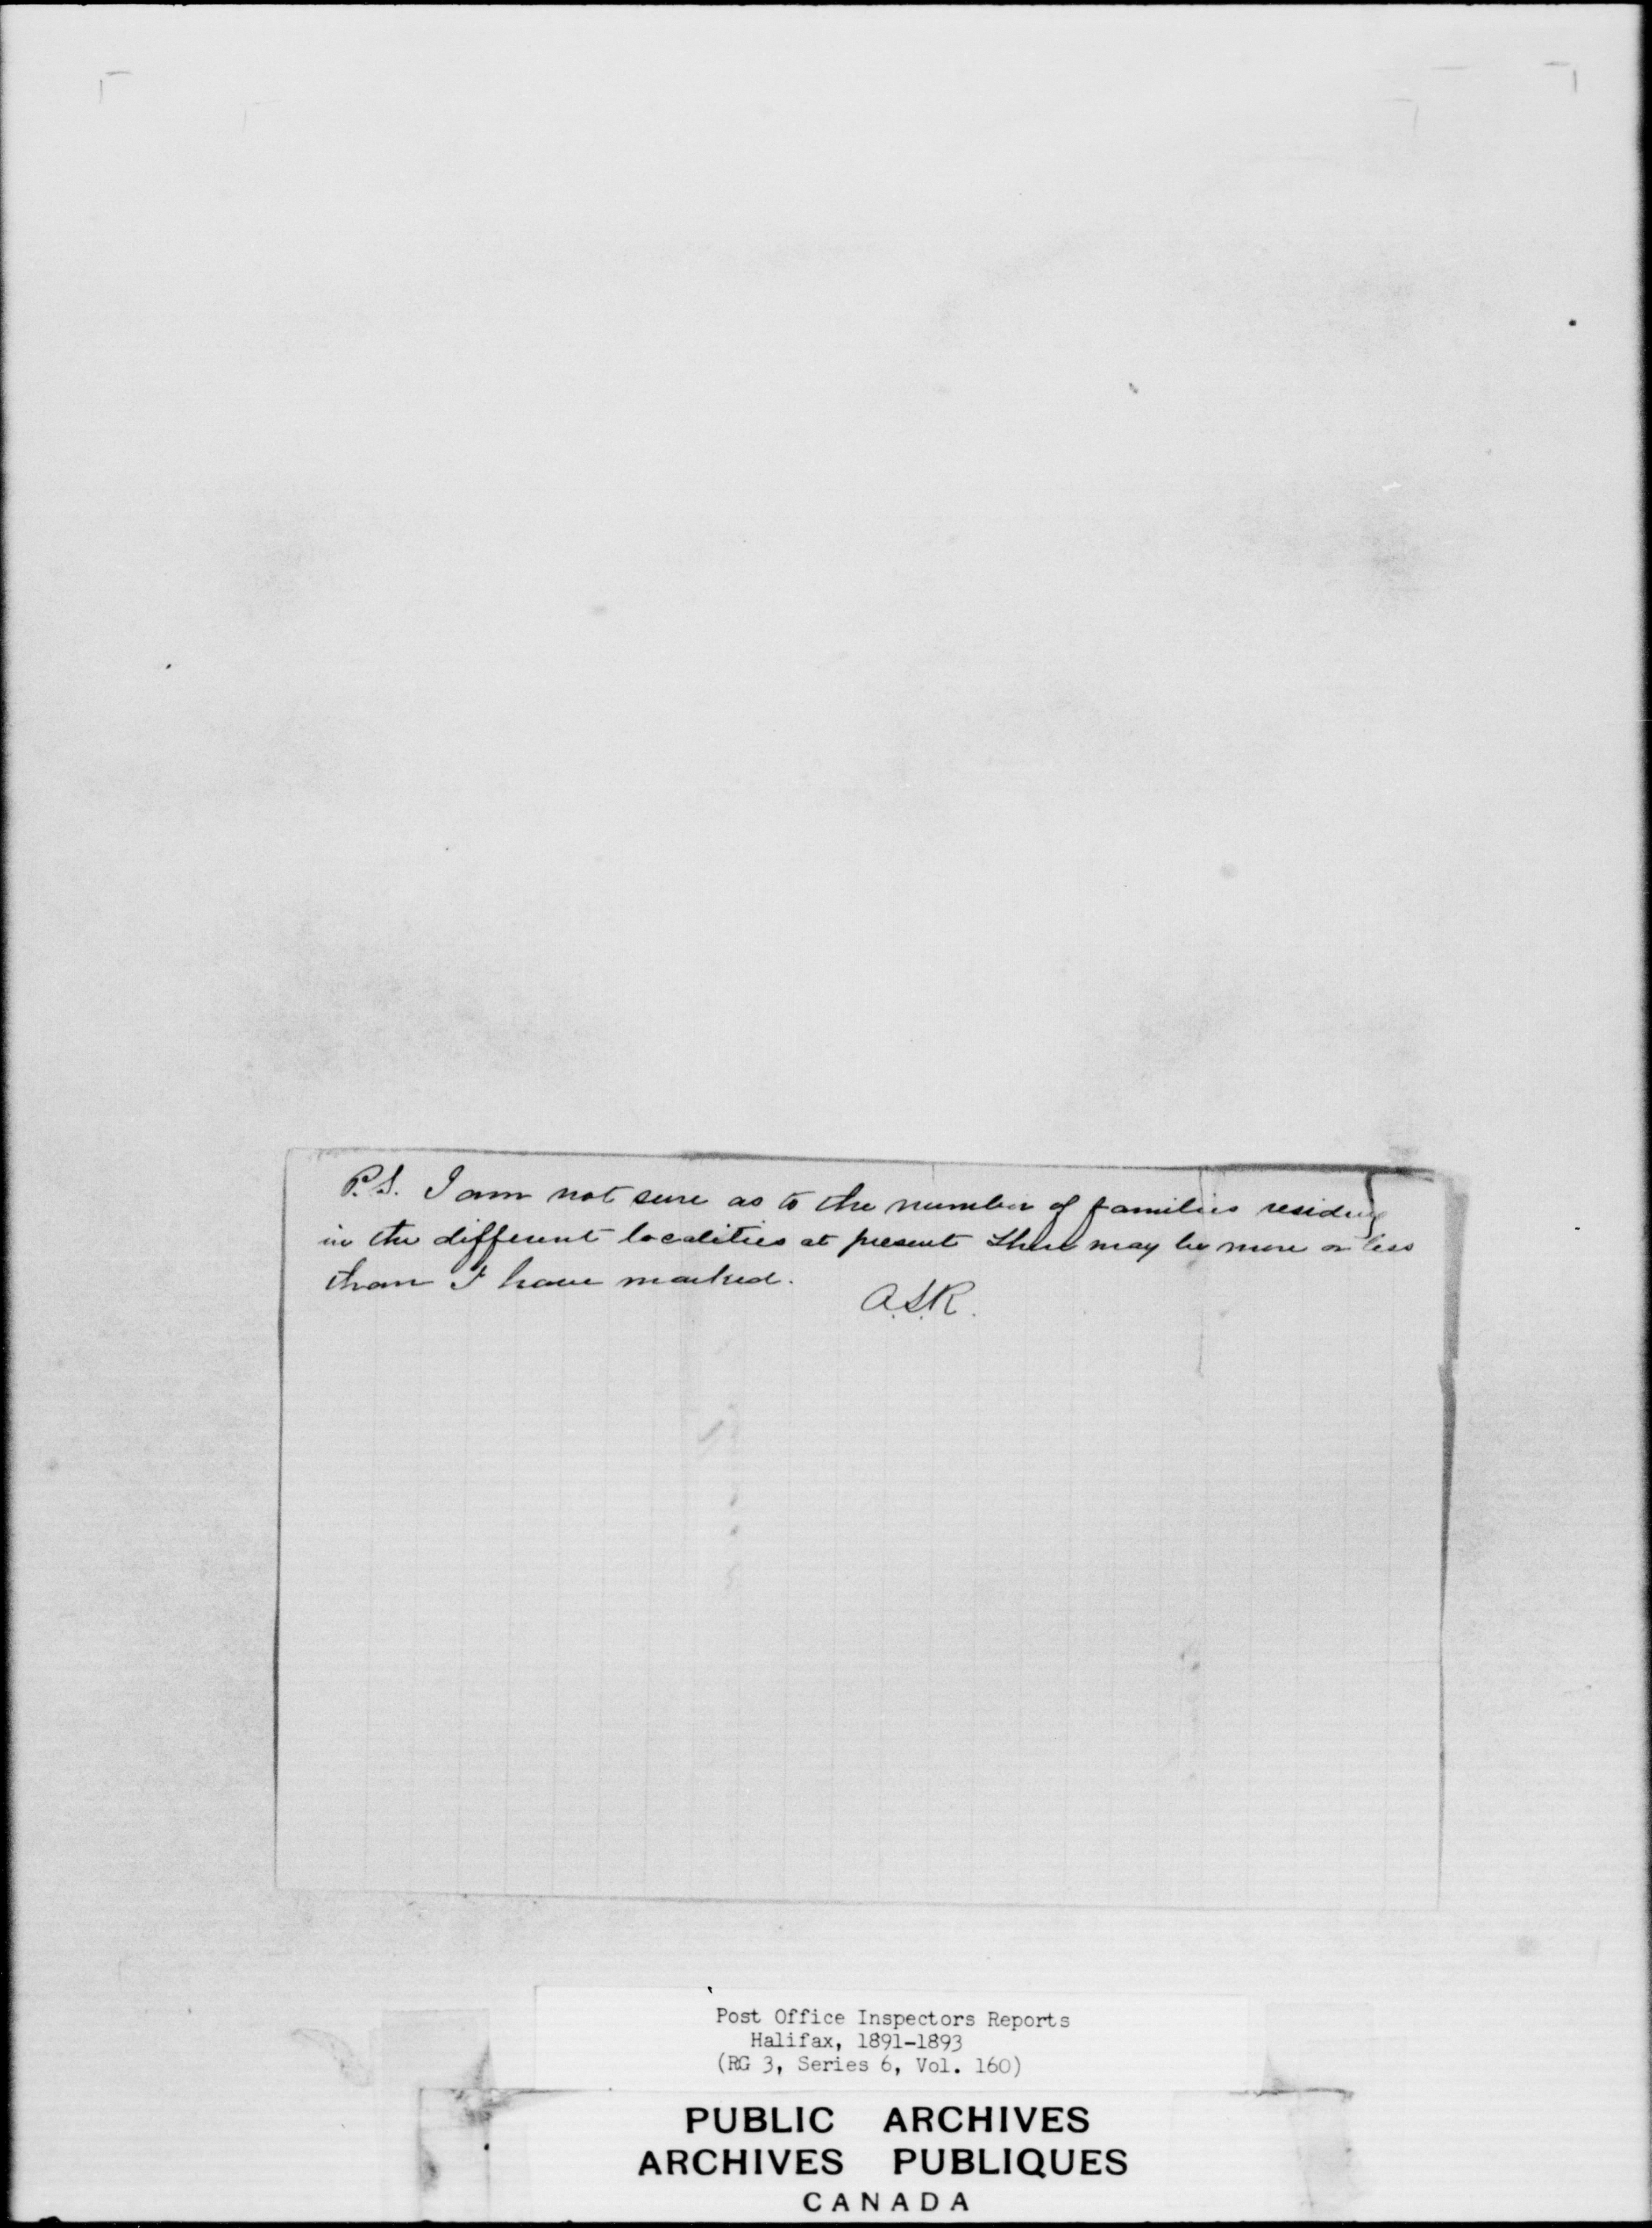 P.S. I am not sure as to the number of families residing
in the different localities at present there may be more or less
than I have marked.
A.S.R.
Post Office Inspectors Reports
Halifax, 1891-1893
(RG 3, Series 6, Vol. 160)
PUBLIC ARCHIVES
ARCHIVES PUBLIQUES
CANADA